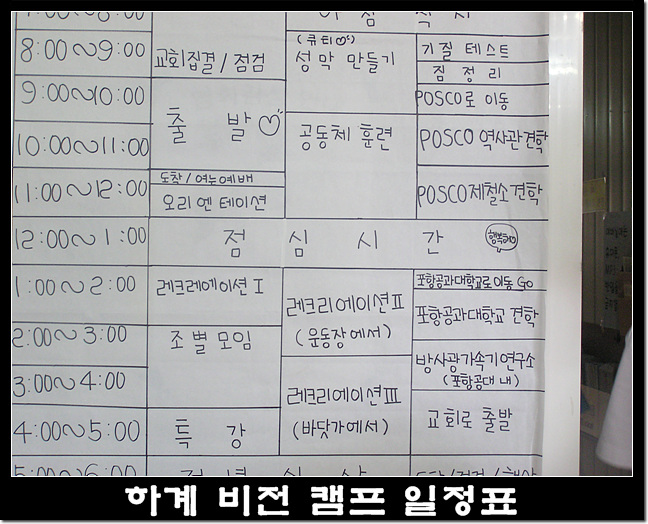 8:00~9:00 교회집결/점검 (큐티♡) 성막 만들기 기질 테스트
짐 정리
9:00~10:00 출 발♡ POSCO로 이동
10:00~11:00 공동체 훈련 POSCO 역사관견학
11:00~12:00 도착/여는예배 POSCO제철소견학
오리엔테이션
12:00~1:00 점 심 시 간
1:00~2:00 레크레에이션 I 레크리에이션 II (운동장에서) 포항공과대학교로이동 Go
포항공과대학교 견학
2:00~3:00 조별모임 방사광가속기연구소
(포항공대 내)
3:00~4:00 레크리에이션 III
4:00~5:00 특 강 (바닷가에서) 교회로 출발
5:00~6:00
하계 비전 캠프 일정표